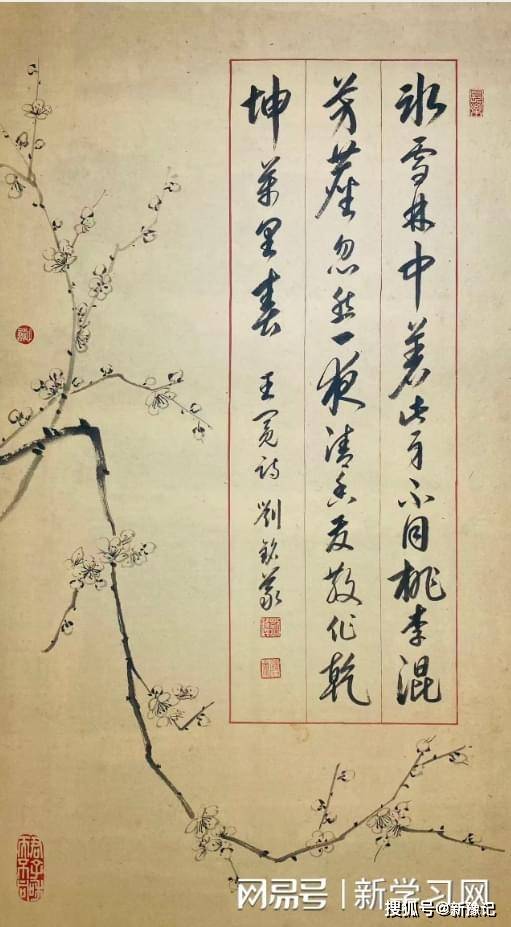 冰雪林中著此身不同桃李混
芳塵忽然一夜清香發散作乾
坤萬里春 王冕詩 劉
网易号 | 新学习网
搜狐号@新豫记